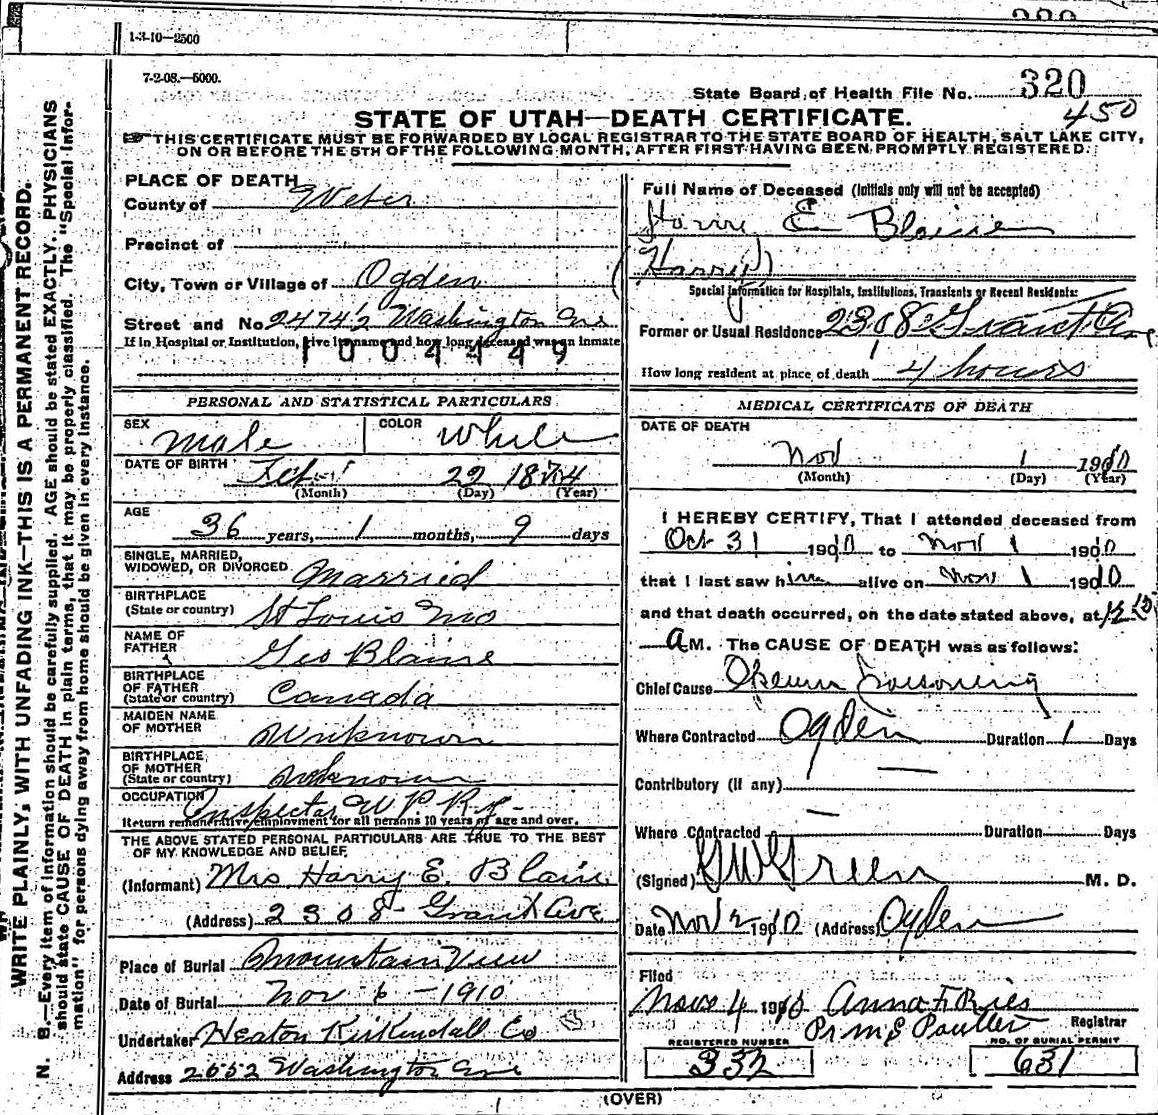 1-3-10—2500
7-2-08.—5000.
State Board of Health File No. 320
450
STATE OF UTAH—DEATH CERTIFICATE.
THIS CERTIFICATE MUST BE FORWARDED BY LOCAL REGISTRAR TO THE STATE BOARD OF HEALTH, SALT LAKE CITY,
ON OR BEFORE THE 5TH OF THE FOLLOWING MONTH, AFTER FIRST HAVING BEEN PROMPTLY REGISTERED.
WRITE PLAINLY, WITH UNFADING INK—THIS IS A PERMANENT RECORD.
N. B.—Every item of information should be carefully supplied. AGE should be stated EXACTLY. PHYSICIANS
should state CAUSE OF DEATH in plain terms, that it may be properly classified. The "Special Infor-
mation" for persons dying away from home should be given in every instance.
PLACE OF DEATH
County of Weber
Precinct of
City, Town or Village of Ogden
Street and No 2474½ Washington Ave
If in Hospital or Institution, give its name and how long deceased was an inmate
1004449
PERSONAL AND STATISTICAL PARTICULARS
SEX Male COLOR White
DATE OF BIRTH Feb 22 1874
(Month) (Day) (Year)
AGE 36 years, 1 months, 9 days
SINGLE, MARRIED,
WIDOWED, OR DIVORCED Married
BIRTHPLACE
(State or country) St Louis Mo
NAME OF
FATHER Geo Blaine
BIRTHPLACE
OF FATHER
(State or country) Canada
MAIDEN NAME
OF MOTHER Unknown
BIRTHPLACE
OF MOTHER
(State or country) Unknown
OCCUPATION Inspector W P Ry
Return remunerative employment for all persons 10 years of age and over.
THE ABOVE STATED PERSONAL PARTICULARS ARE TRUE TO THE BEST
OF MY KNOWLEDGE AND BELIEF.
(Informant) Mrs Harry E. Blaine
(Address) 2308 Grant Ave
Place of Burial Mountain View
Date of Burial Nov 6 - 1910
Undertaker Heaton Kirkendall Co
Address 2652 Washington Ave
Full Name of Deceased (Initials only will not be accepted)
Harry E Blaine
(Harry)
Special Information for Hospitals, Institutions, Transients or Recent Residents:
Former or Usual Residence 2308 Grant Ave
How long resident at place of death 4 hours
MEDICAL CERTIFICATE OF DEATH
DATE OF DEATH
Nov 1 1910
(Month) (Day) (Year)
I HEREBY CERTIFY, That I attended deceased from
Oct 31 1910 to Nov 1 1910
that I last saw him alive on Nov 1 1910
and that death occurred, on the date stated above, at 12 15
A M. The CAUSE OF DEATH was as follows:
Chief Cause Opium Poisoning
Where Contracted Ogden Duration 1 Days
Contributory (if any) —
Where Contracted — Duration Days
(Signed) Green M. D.
Date Nov 2 1910 (Address) Ogden
Filed
Nov 4 1910 Anna F Ries
Pr M E Registrar
REGISTERED NUMBER NO. OF BURIAL PERMIT
332 631
(OVER)